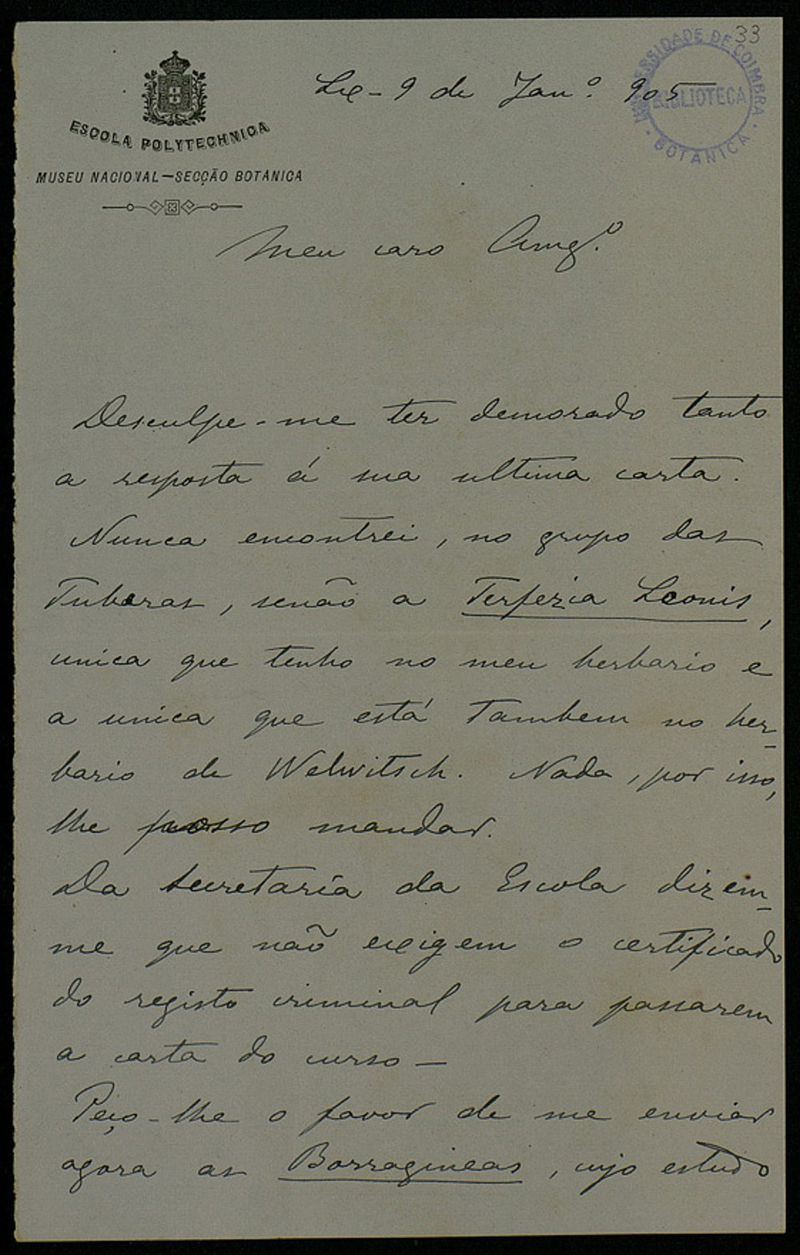 33
UNIVERSIDADE DE COIMBRA
BIBLIOTECA
BOTANICA
ESCOLA POLYTECHNICA
MUSEU NACIONAL—SECÇÃO BOTANICA
Lx - 9 de Jan.º 905
Meu caro Amg.º
Desculpe-me ter demorado tanto
a resposta á sua ultima carta.
Nunca encontrei, no grupo das
Tuberas, senão a Terfezia Leonis,
unica que tenho no meu herbario e
a unica que está tambem no her-
bario de Welwitsch. Nada, por isso,
lhe posso mandar.
Da secretaria da Escola dizem-
me que não exigem o certificado
do registo criminal para passarem
a carta do curso —
Peço-lhe o favor de me enviar
agora as Borragineas, cujo estudo